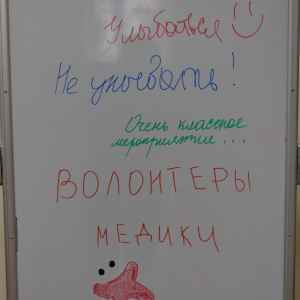 Улыбаться
Не унывать!
Очень классное
мероприятие...
ВОЛОНТЕРЫ
МЕДИКИ